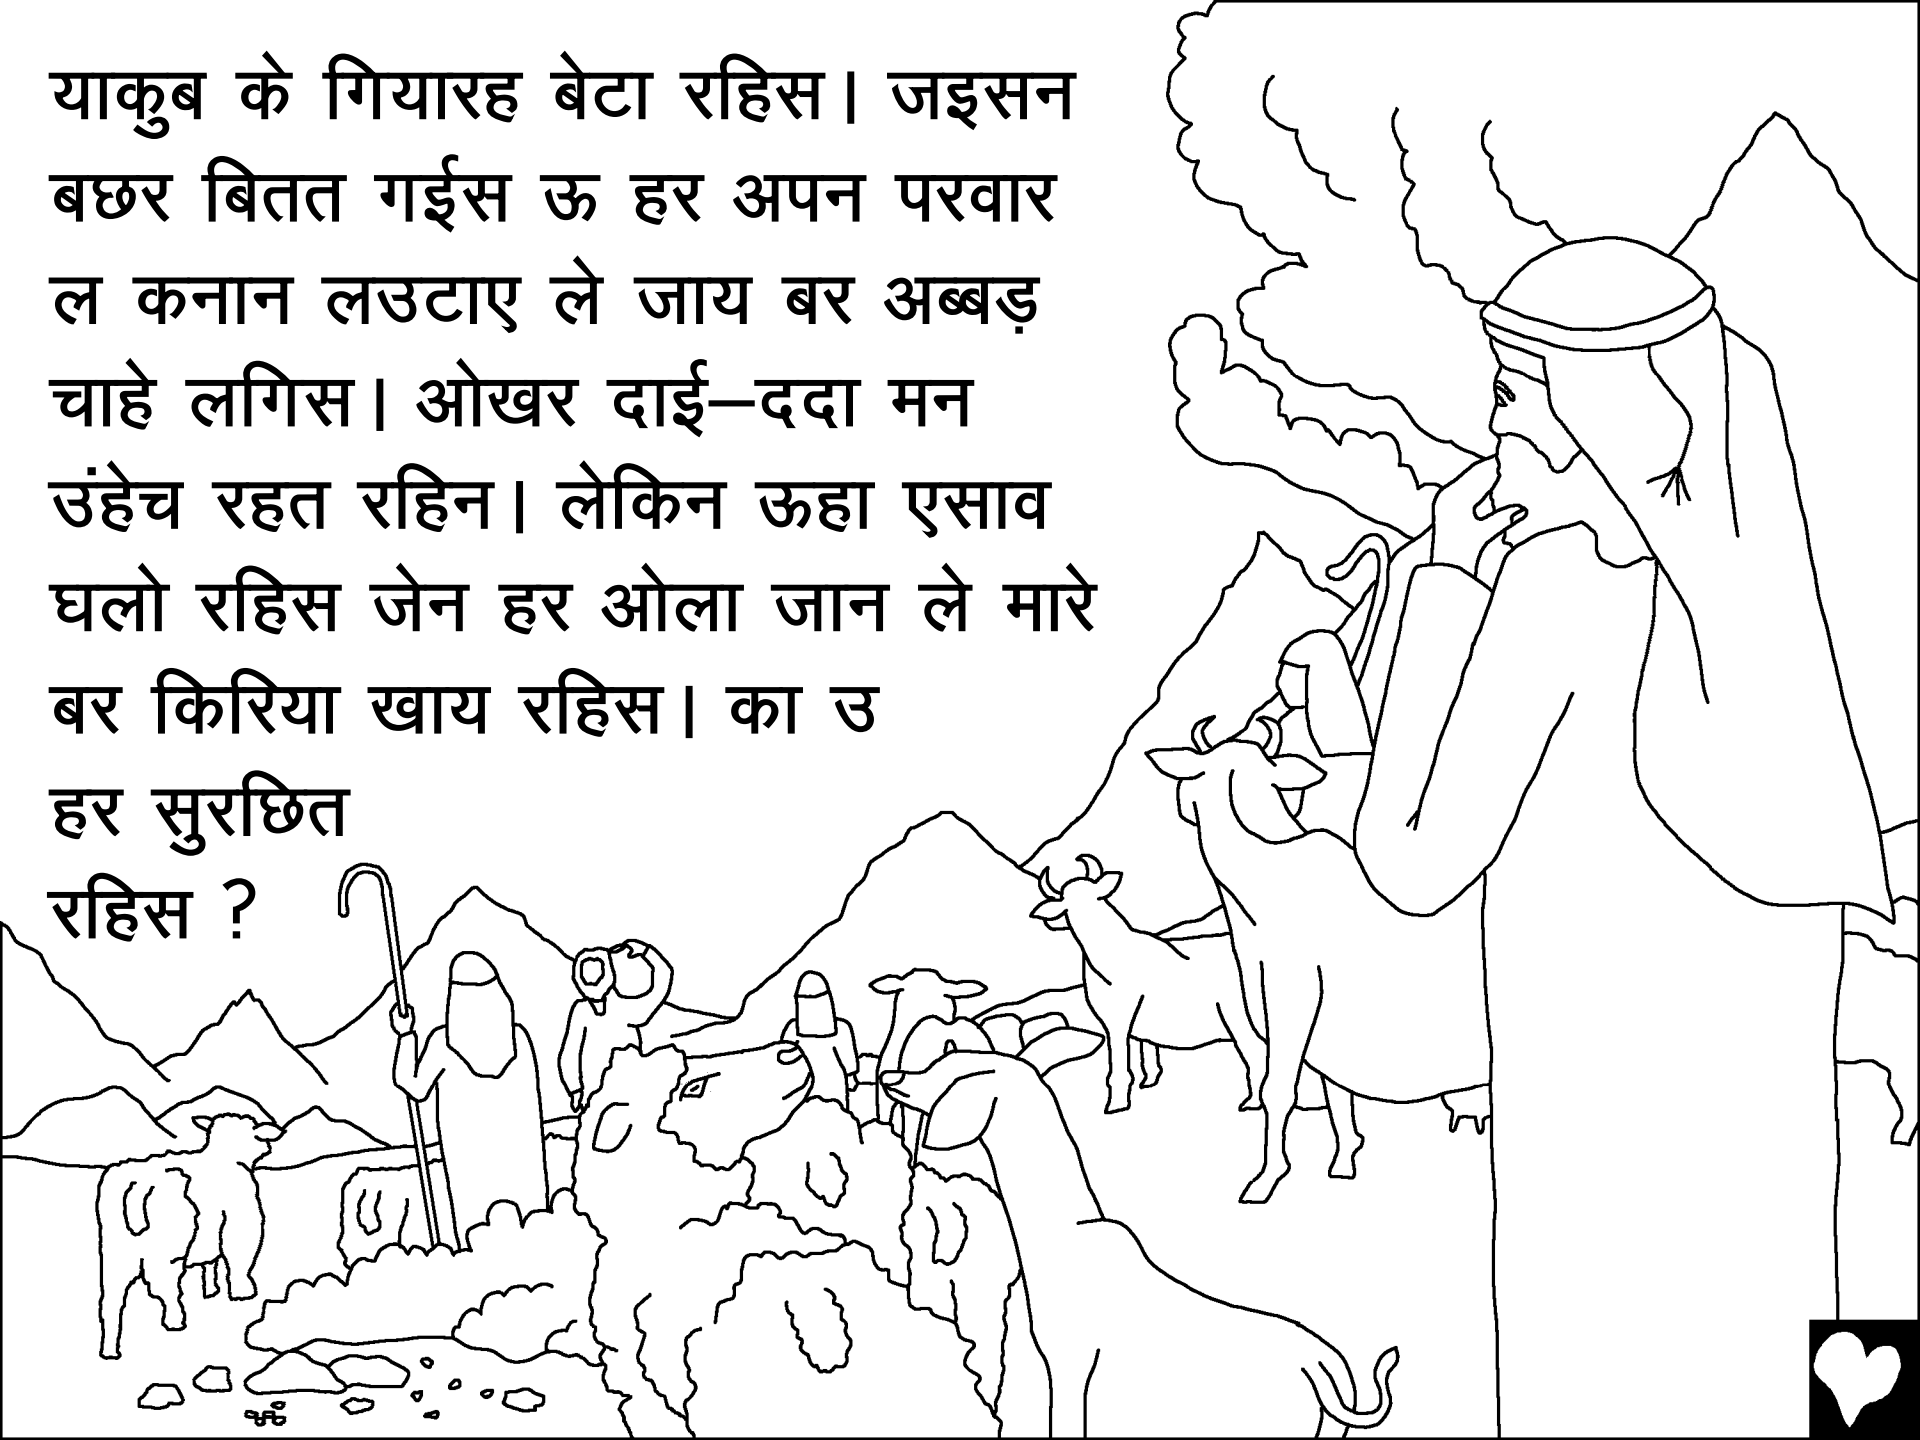 याकुब के गियारह बेटा रहिस। जइसन
बछर बितत गईस ऊ हर अपन परवार
ल कनान लउटाए ले जाय बर अब्बड़
चाहे लगिस। ओखर दाई–ददा मन
उंहेच रहत रहिन। लेकिन ऊहा एसाव
घलो रहिस जेन हर ओला जान ले मारे
बर किरिया खाय रहिस। का उ
हर सुरछित
रहिस ?